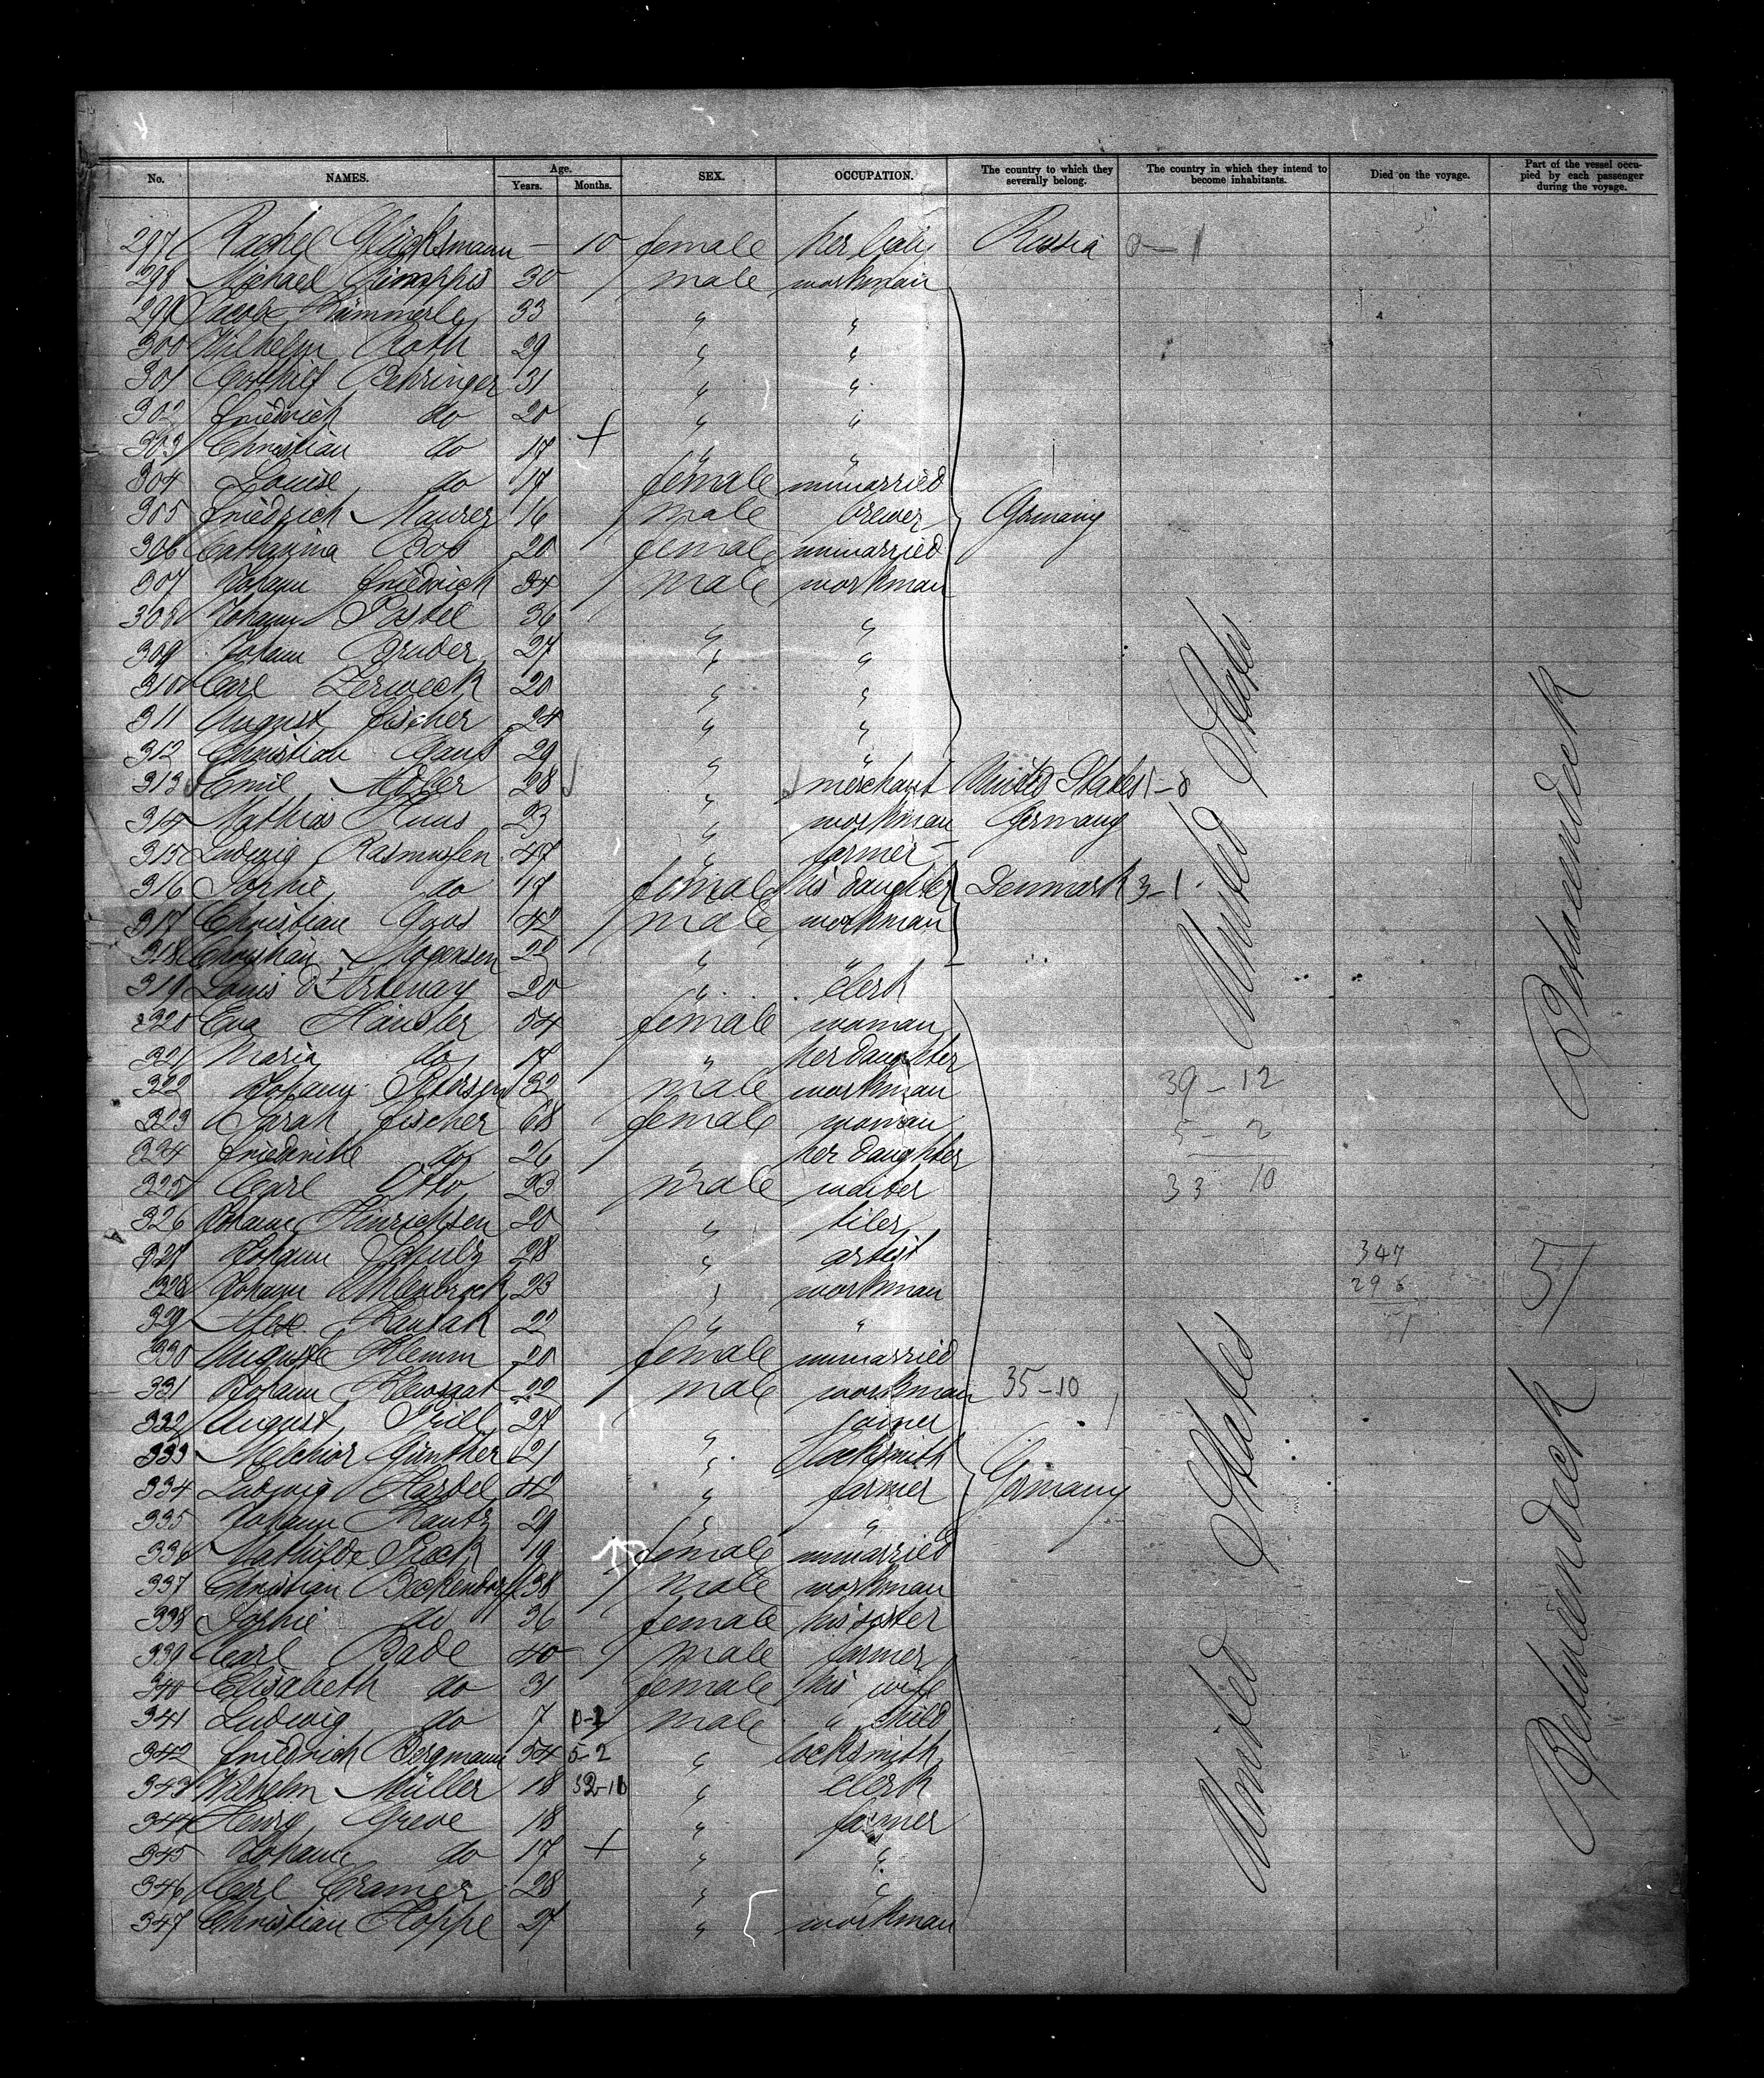 No. NAMES. Age. Years. Months. SEX. OCCUPATION. The country to which they severally belong. The country in which they intend to become inhabitants. Died on the voyage. Part of the vessel occupied by each passenger during the voyage.
297 Rachel Glücksmann – 10 female her baby Russia 0–1
298 Michael 30 male workman
299 Jacob Kümmerle 33 " "
300 Wilhelm Roth 29 " "
301 Gotthilf Behringer 31 " "
302 Friedrich do 20 " "
303 Christian do 17 + " "
304 Louise do 17 female unmarried
305 Friedrich Maurer 16 male brewer Germany
306 Catharina Bob 20 female unmarried
307 Johann Friedrich 34 male workman
308 Johann Postel 36 " "
309 Johann Bruder 27 " "
310 Carl Zerweck 20 " "
311 August Fischer 24 " "
312 Christian Gans 29 " "
313 Emil Adler 28 " merchant United States 1–0
314 Mathias Huus 23 " workman Germany
315 Ludwig Rasmussen 47 " farmer
316 Sophie do 17 female his daughter Denmark 3–1
317 Christian Goos 42 male workman
318 Christian Mogensen 22 " "
319 Louis d'Artenay 20 " clerk
320 Eva Häusler 54 female woman
321 Maria do 17 " her daughter
322 Johann Petersen 32 male workman
323 Sarah Fischer 68 female woman
324 Friedrike do 26 her daughter
325 Carl Otto 23 male waiter
326 Johann Hinrichsen 20 " tiler
327 Johann Schulz 28 " artist
328 Johann Uhlenbrock 23 " workman
329 Max 22 " "
330 Auguste Klemm 20 female unmarried
331 Johann 22 male workman 35–10
332 August Prill 27 " joiner
333 Melchior Günther 21 " locksmith
334 Ludwig Härtel 42 " farmer Germany
335 Johann Kautz 29 " "
336 Mathilde 19 female unmarried
337 Christian Beckendorff 38 male workman
338 Sophie do 36 female his sister
339 Carl Bade 40 male farmer
340 Elisabeth do 31 female his wife
341 Ludwig do 7 0–1 male " child
342 Friedrich Bergmann 54 5–2 " locksmith
343 Wilhelm Müller 18 32–10 " clerk
344 Henry Greve 18 " farmer
345 Johann do 17 + " "
346 Carl Cramer 28 " "
347 Christian Hoppe 27 " workman
United States
United States
39–12
5–2
33 10
347
296
51
51
Betweendeck
Betweendeck